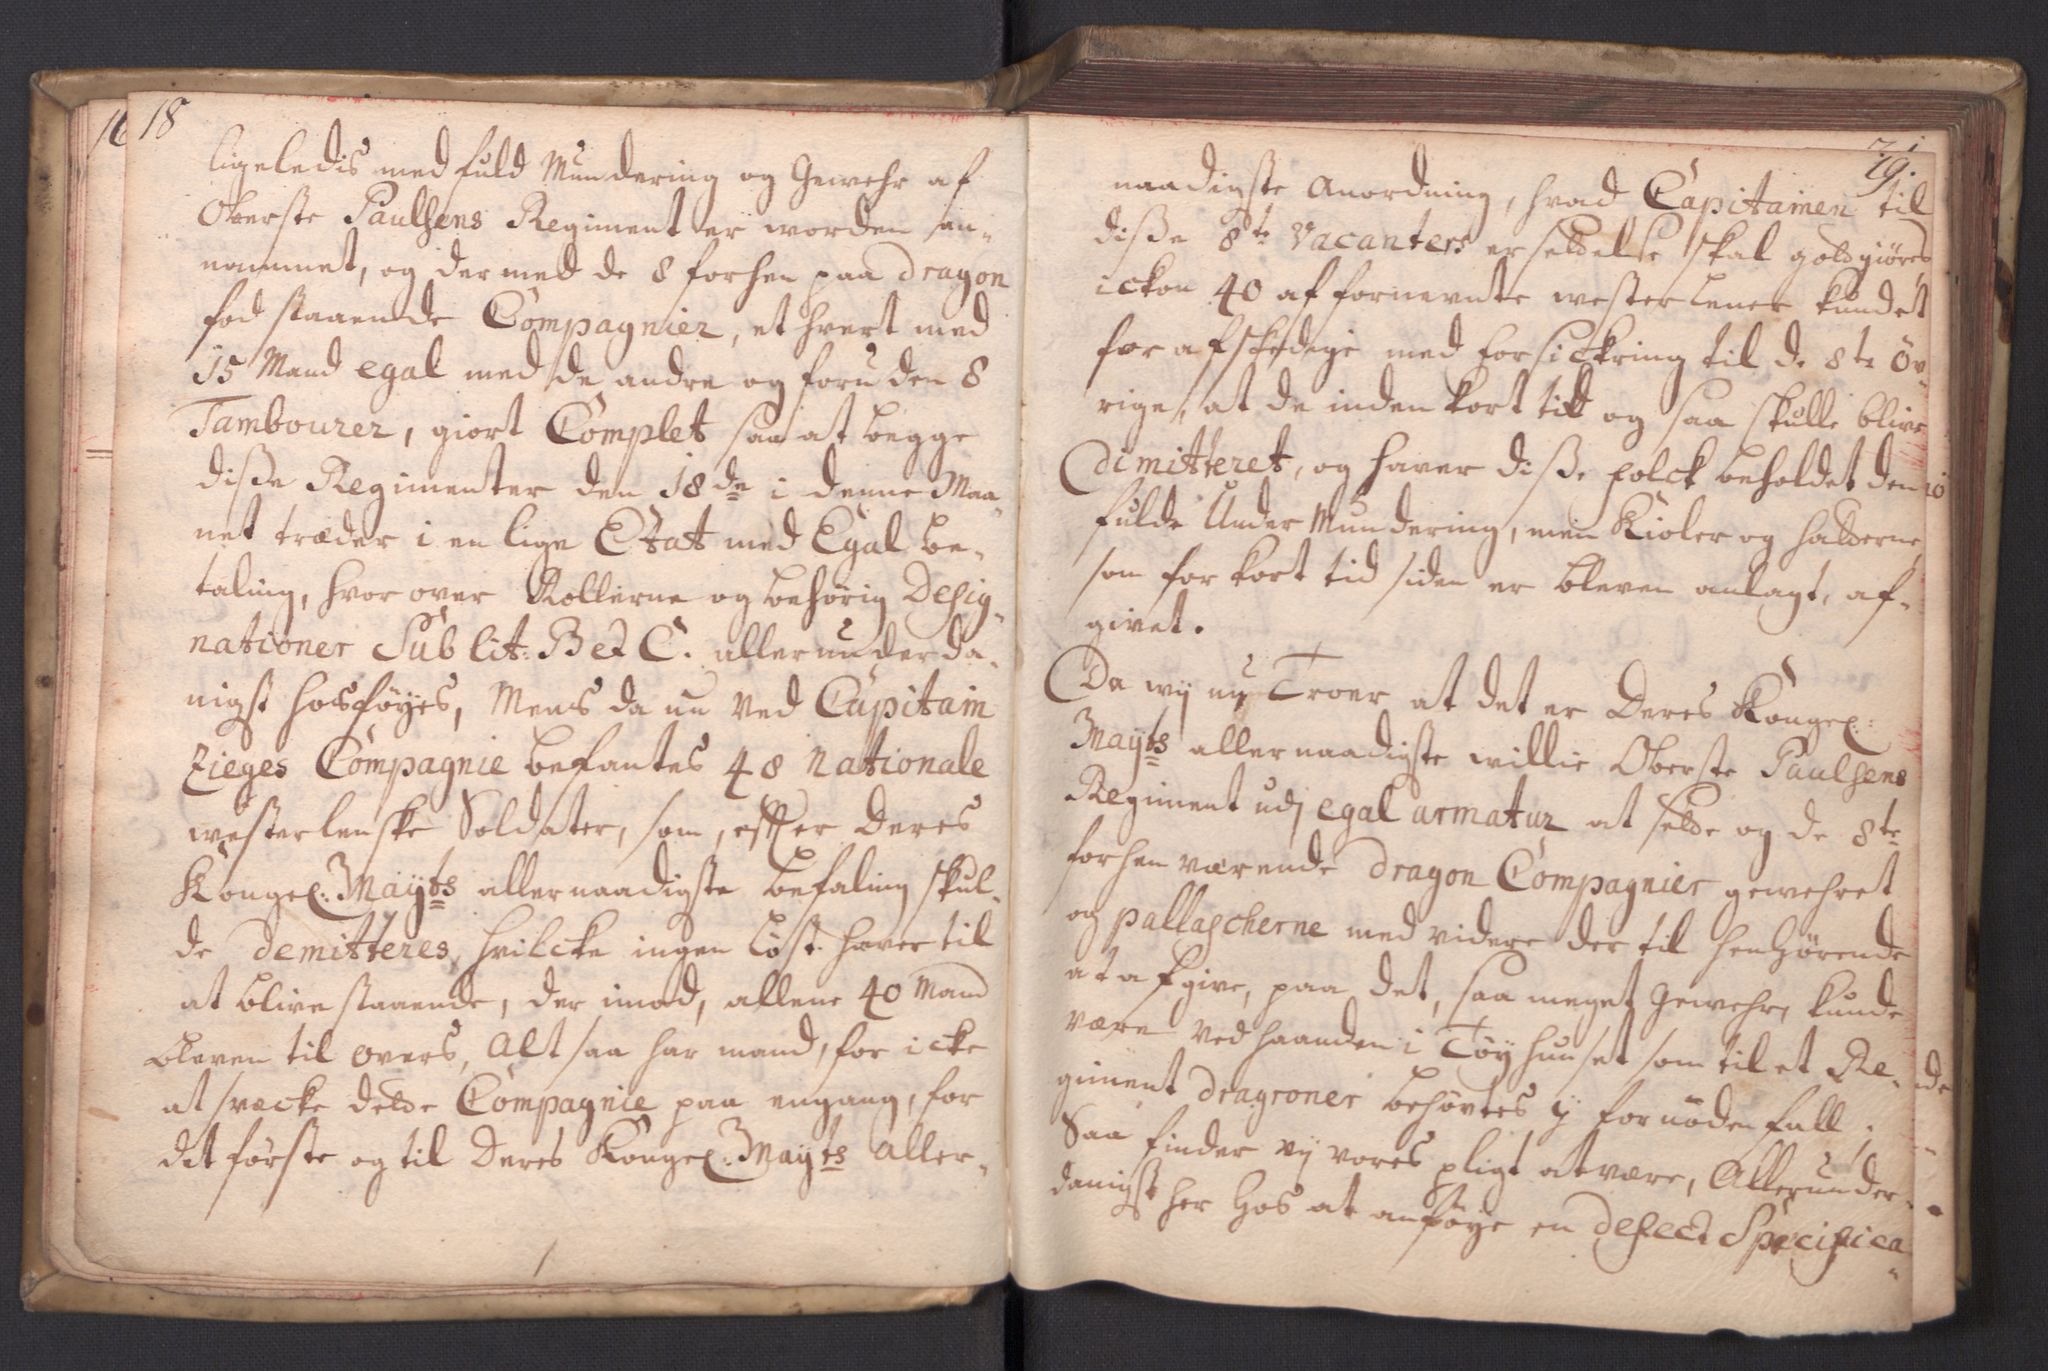 18
ligeledis med fuld Mundering og Gewehr af
Oberste Paulsens Regiment er worden an-
nammet, og der med de 8 forhen paa dragon
fod staaende Compagnier, et hvert med
15 Mand egal med de andre og foruden 8
Tambourer, giort Complet saa at begge
disse Regimenter den 18de i denne Maa-
net træder i en lige Etat med Egal be-
taling, hvor over Rollerne og behörig Desig-
nationer Sub lit: B et C. allerunderda-
nigst hosföyes, Mens da nu ved Capitain
Zieges Compagnie befantes 48 Nationale
westerlenske Soldater, som, efter Deres
Kongel: Mayts allernaadigste befaling skul-
de demitteres, hvilcke ingen löst haver til
at blive staaende, der imod, allene 40 Mand
bleven til overs, Alt saa har mand, for icke
at svecke delde Compagnie paa engang, for
det förste og til Deres Kongel: Mayts Aller-
19.
naadigste Anordning, hvad Capitainen til
disse 8te Vacanters erstattelse skal godtgiöres
ickon 40 af fornevnte westerlener kundet
for afskedige med forsickring til de 8te öv-
rige, at de inden kort tid og saa skulle blive
dimitteret, og haver disse folck beholdet den
fulde Under Mundering, men Kioler og hatterne
som for kort tid siden er bleven anlagt, af-
givet.
Da wij nu Troer at det er Deres Kongel:
Mayts allernaadigste willie Oberste Paulsens
Regiment udj egal armatur at sette og de 8te
forhen værende dragon Compagnier gewehret
og pallascherne med videre der til henhörende
at afgive, paa det, saa meget Gewehr kunde
være ved haanden i Töyhuuset som til et Re-
giment dragroner behövtes ij fornöden fall;
Saa finder vij vores pligt at være, Allerunder-
danigst her hos at anföye en defect Specifica-